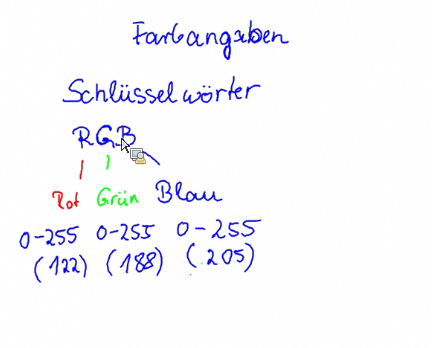 Farbangaben
Schlüsselwörter
RGB
Rot Grün Blau
0-255 0-255 0-255
(122) (188) (205)